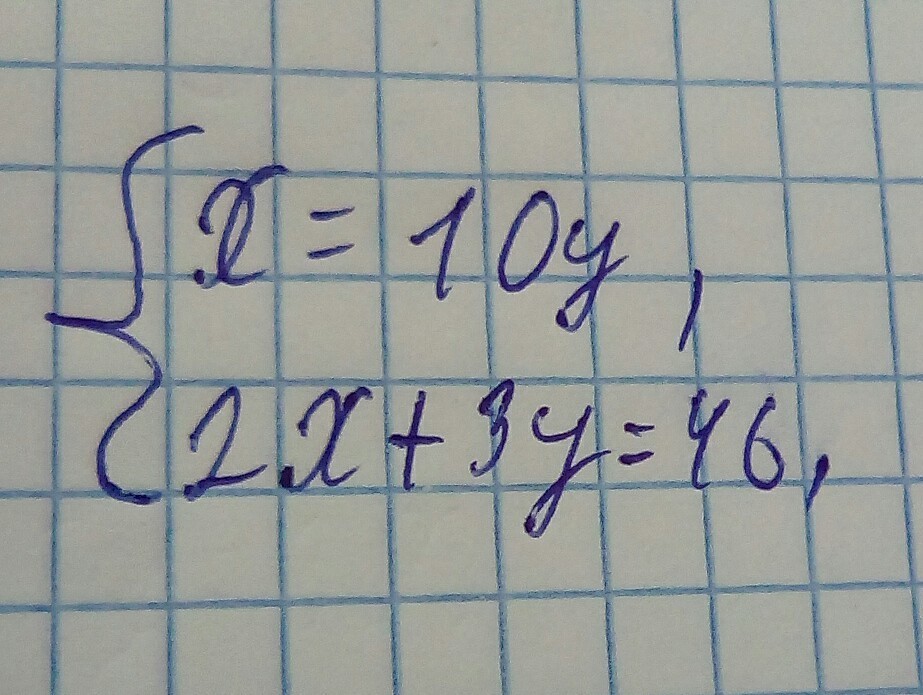 { x = 10y,
2x + 3y = 46,